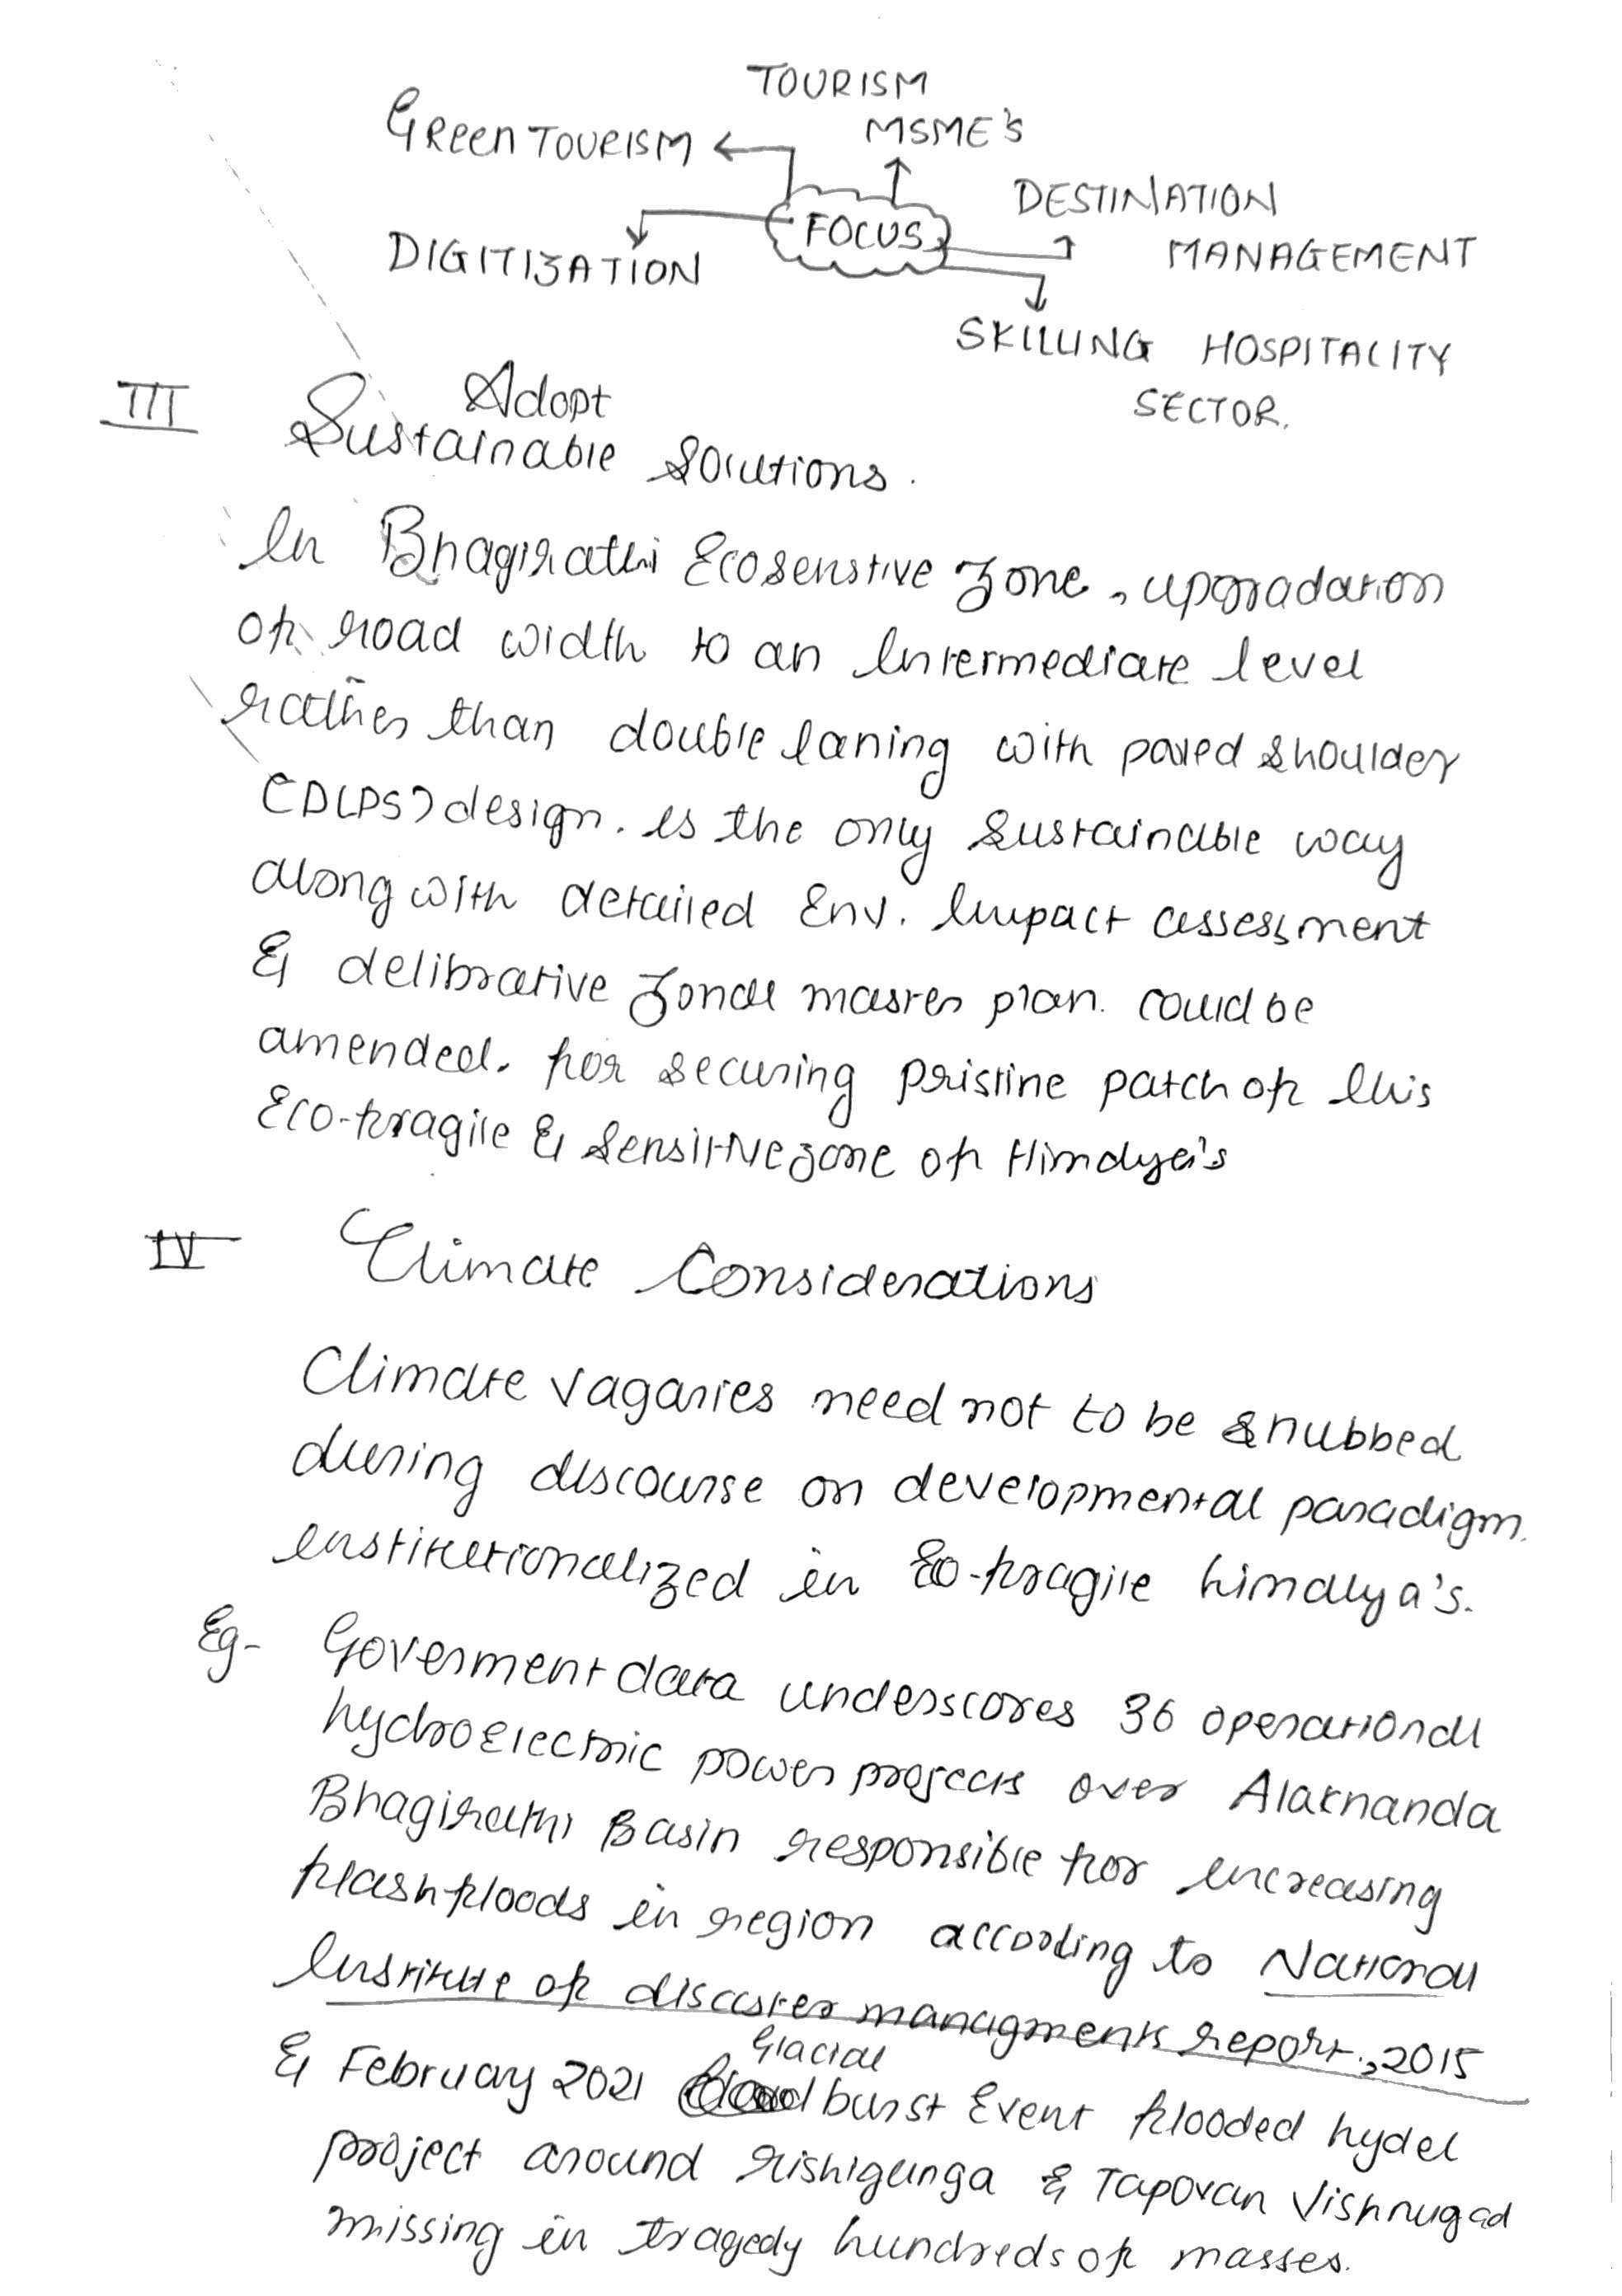 TOURISM
MSME's
Green TOURISM
DESTINATION
MANAGEMENT
FOCUS
DIGITIZATION
SKILLING HOSPITALITY
SECTOR.
III Adopt
Sustainable Solutions.
In Bhagirathi Ecosenstive Zone, upgradation
of road width to an Intermediate level
rather than double laning with paved shoulder
(DLPS) design. is the only sustainable way
along with detailed Env. Impact assessment
& delibrative Zonal master plan. could be
amended. for securing pristine patch of this
Eco-fragile & Sensitive zone of Himalya's
IV Climate Considerations
Climate vagaries need not to be snubbed
during discourse on developmental paradigm
institutionalized in Eco-fragile himalya's.
Eg- Goverment data underscores 36 operational
hydroelectric power projects over Alaknanda
Bhagirathi Basin responsible for increasing
flashfloods in region according to National
Institute of disaster managments report, 2015
Glacial
& February 2021 burst Event flooded hydel
project around rishiganga & Tapovan Vishnugad
missing in tragedy hundreds of masses.